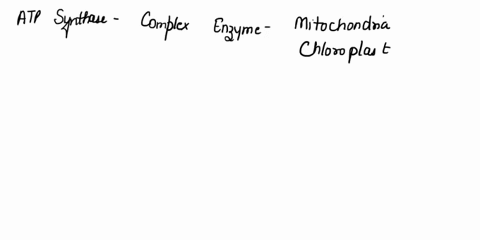 ATP Synthase - Complex Enzyme - Mitochondria
Chloroplast